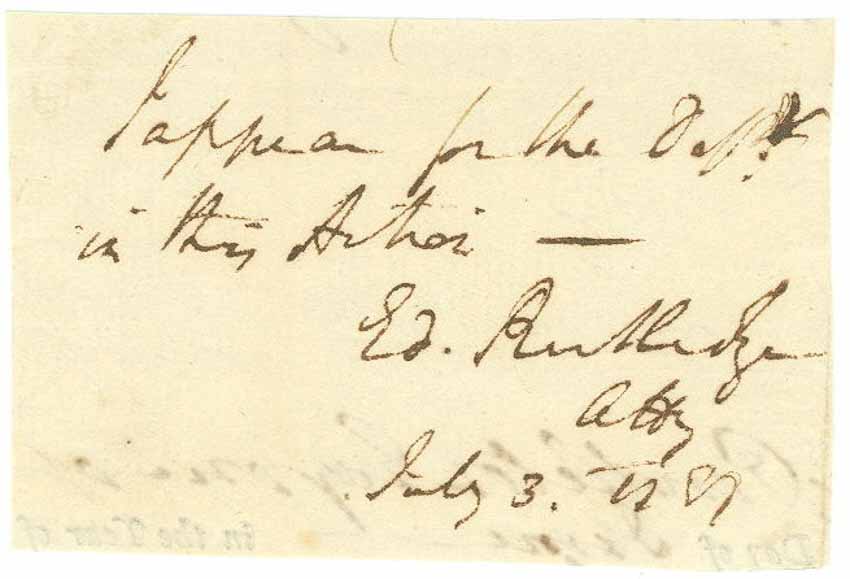 I appear for the Deft.
in this Action —
Ed. Rutledge
Atty
July 3. 1787
Day of
in the Year of